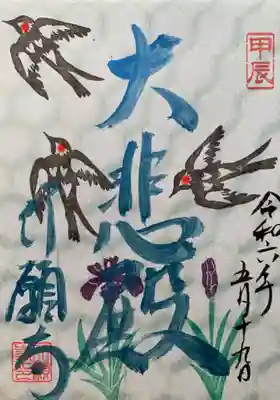 甲辰
令和六年
五月十九日
大悲殿
行願寺